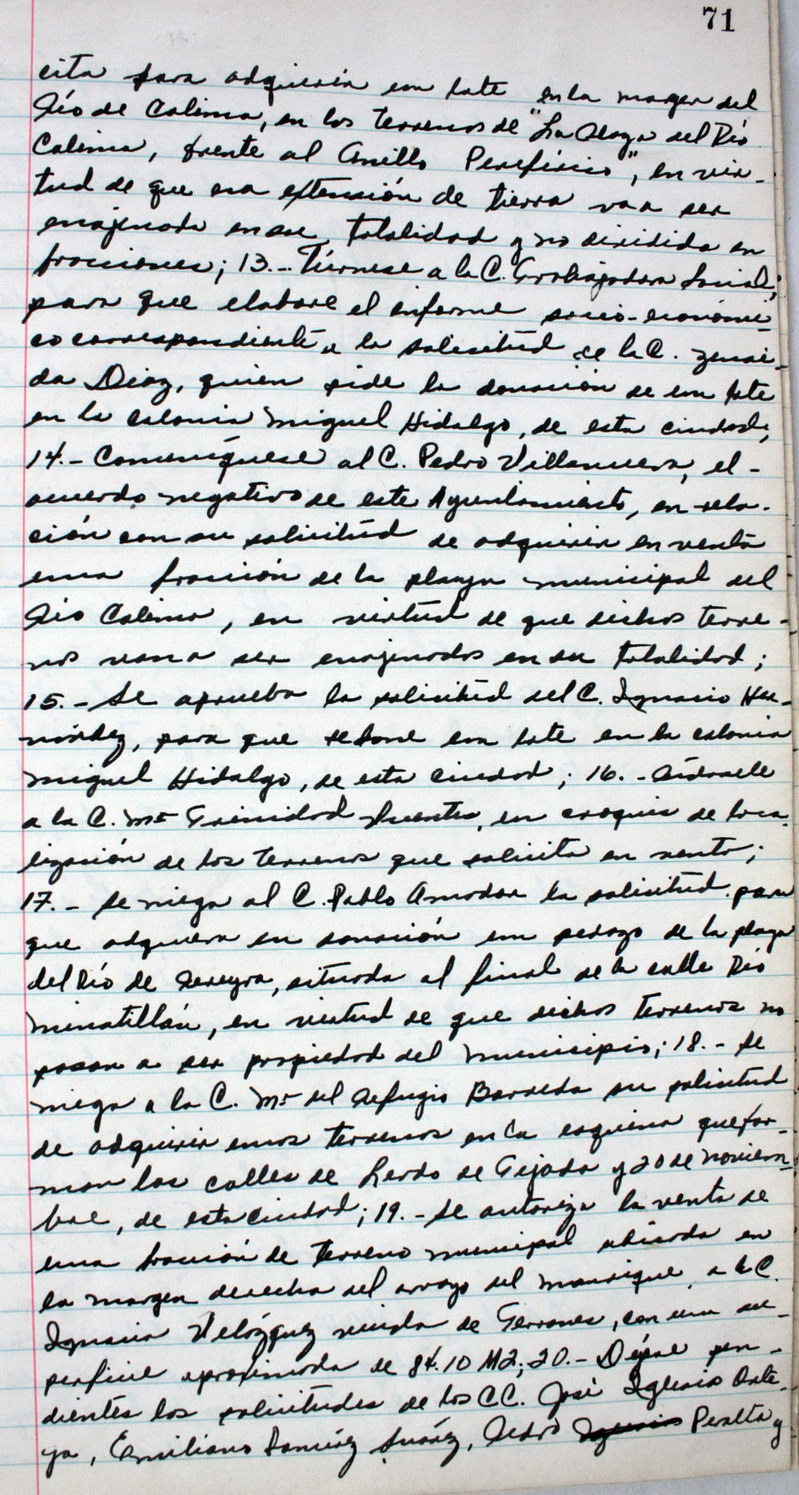 71
cita para adquirir un lote en la margen del
Río de Colima, en los terrenos de "La Playa del Río
Colima, frente al Anillo Periférico", en vir-
tud de que esa extensión de tierra va a ser
enajenada en su totalidad y no dividida en
fracciones; 13.- Túrnese a la C. Trabajadora Social,
para que elabore el informe socio-económi-
co correspondiente a la solicitud de la C. Zenai-
da Díaz, quien pide la donación de un lote
en la colonia Miguel Hidalgo, de esta ciudad;
14.- Comuníquese al C. Pedro Villanueva, el -
acuerdo negativo de este Ayuntamiento, en rela-
ción con su solicitud de adquirir en venta
una fracción de la playa municipal del
Río Colima, en virtud de que dichos terre-
nos van a ser enajenados en su totalidad;
15.- Se aprueba la solicitud del C. Ignacio Her-
nández, para que se done un lote en la colonia
Miguel Hidalgo, de esta ciudad; 16.- Pídasele
a la C. Mª Trinidad Fuentes, un croquis de loca-
lización de los terrenos que solicita en venta;
17.- Se niega al C. Pablo Amador la solicitud para
que adquiera en donación un pedazo de la playa
del Río de Pereyra, situada al final de la calle Río
Minatitlán, en virtud de que dichos terrenos no
pasan a ser propiedad del municipio; 18.- Se
niega a la C. Mª del Refugio Barreda su solicitud
de adquirir unos terrenos en la esquina que for-
man las calles de Lerdo de Tejada y 20 de Noviem-
bre, de esta ciudad; 19.- Se autoriza la venta de
una fracción de terreno municipal ubicada en
la margen derecha del arroyo del Manrique a la C.
Ignacia Velázquez viuda de Terrones, con una su-
perficie aproximada de 84.10 M2; 20.- Déjense pen-
dientes las solicitudes de los CC. José Iglesia
ya, Emiliano Ramírez Suárez, Pedro Peralta y